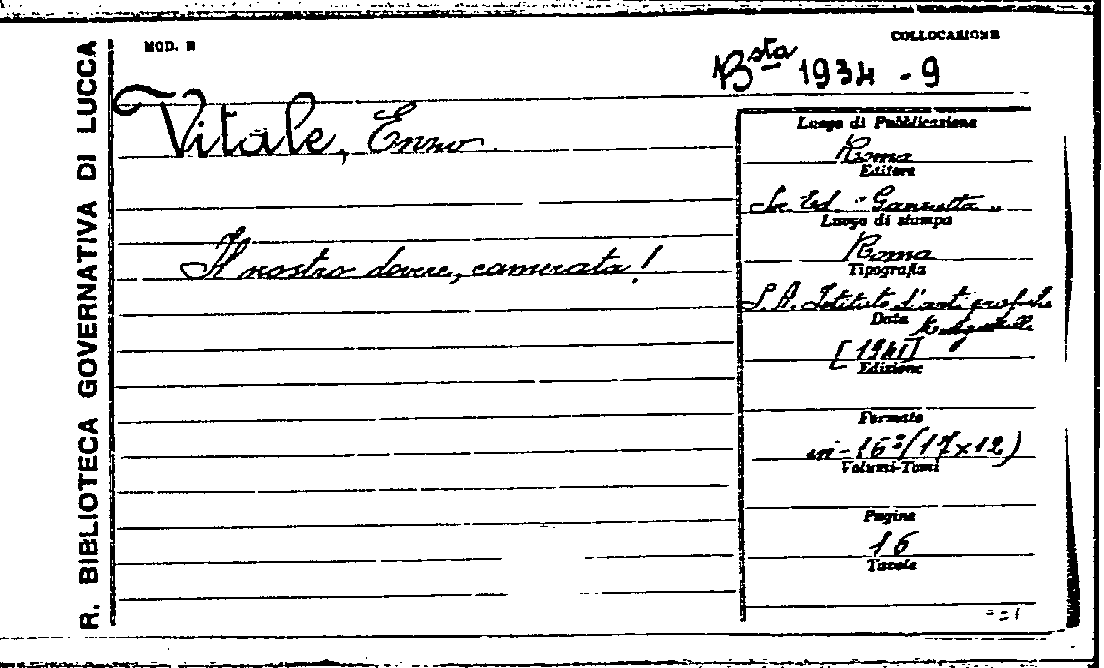 R. BIBLIOTECA GOVERNATIVA DI LUCCA
MOD. B
COLLOCAZIONE
Bsta 1934 - 9
Vitale, Enno
Il nostro dovere, camerata!
Luogo di Pubblicazione
Roma
Editore
Soc. Ed. "Gazzetta"
Luogo di stampa
Roma
Tipografia
S. A. Istituto d'arti grafiche
Data
[1941]
Edizione
Formato
in-16º (17x12)
Volumi-Tomi
Pagine
16
Tavole